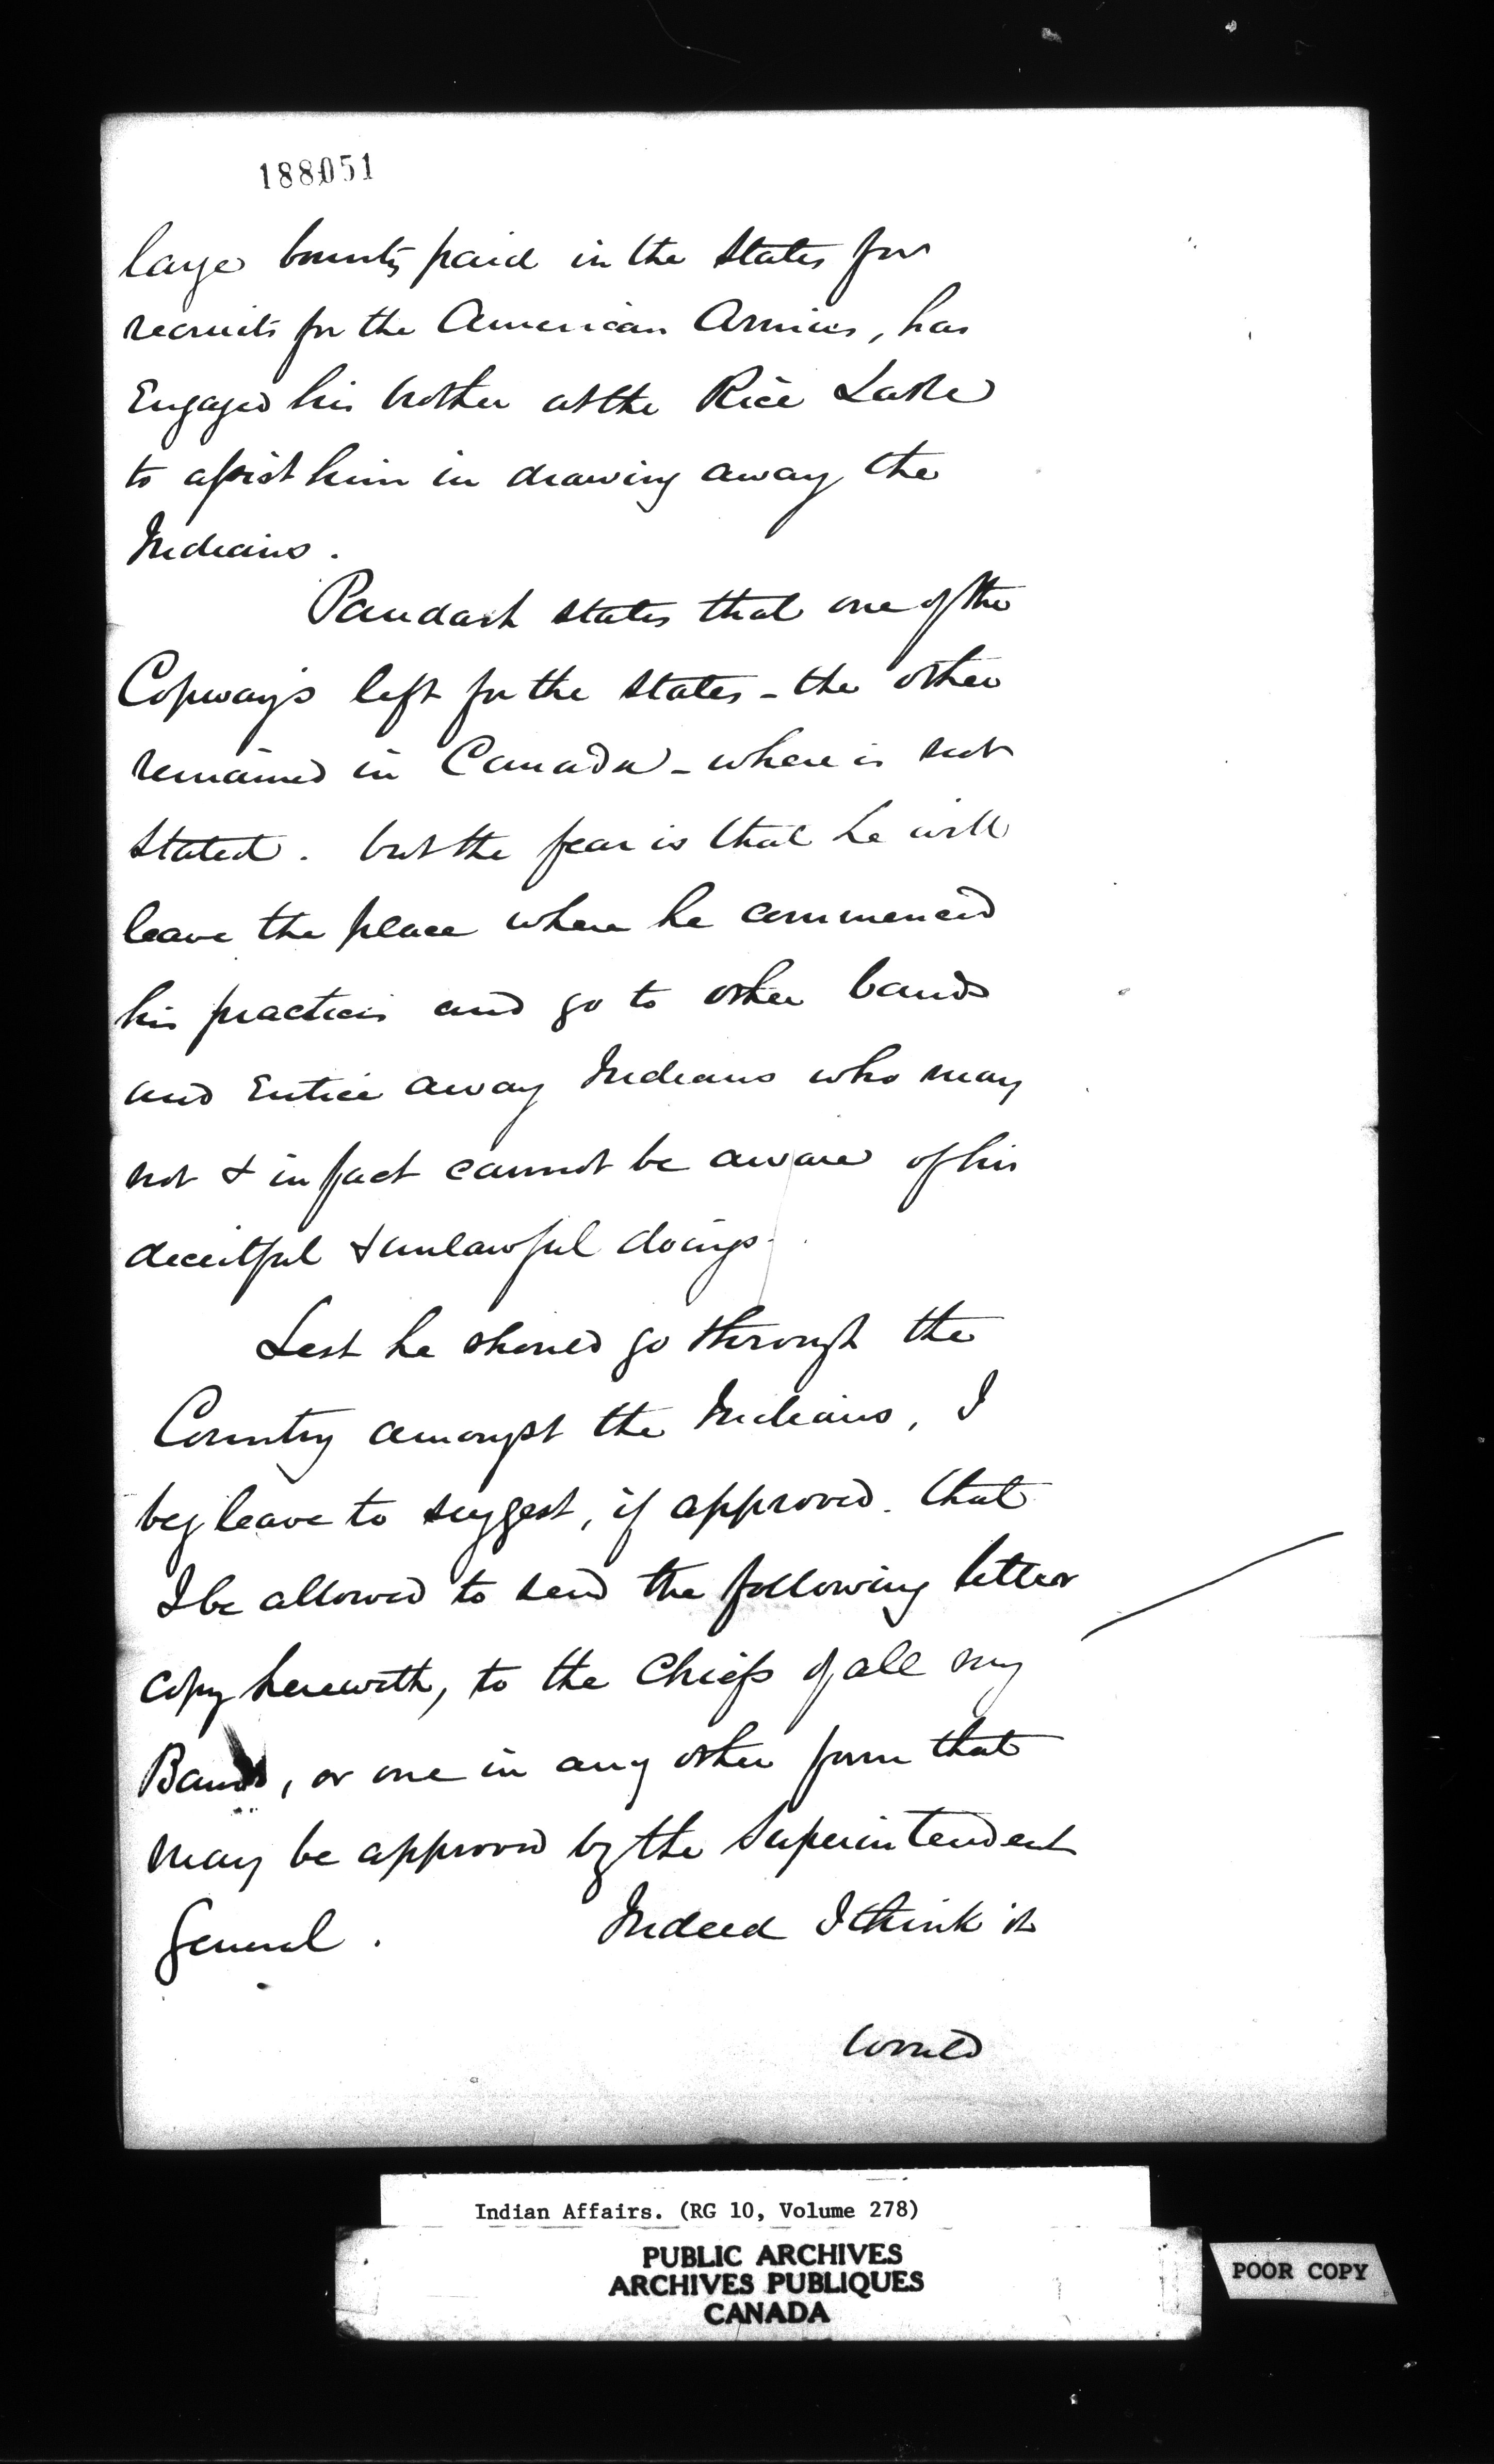 188051
large bounty paid in the States for
recruits for the American Armies, has
Engaged his brother at the Rice Lake
to assist him in drawing away the
Indians.
Paudash states that one of the
Copway's left for the States - the other
remained in Canada - where is not
stated. but the fear is that he will
leave the place where he commenced
his practices and go to other bands
and Entice away Indians who may
not & in fact cannot be aware of his
deceitful & unlawful doings.
Lest he should go through the
Country amongst the Indians, I
beg leave to suggest, if approved. that
I be allowed to send the following letter
copy herewith, to the Chiefs of all my
Bands, or one in any other form that
may be approved by the Superintendent
General. Indeed I think it
would
Indian Affairs. (RG 10, Volume 278)
PUBLIC ARCHIVES
ARCHIVES PUBLIQUES
CANADA
POOR COPY